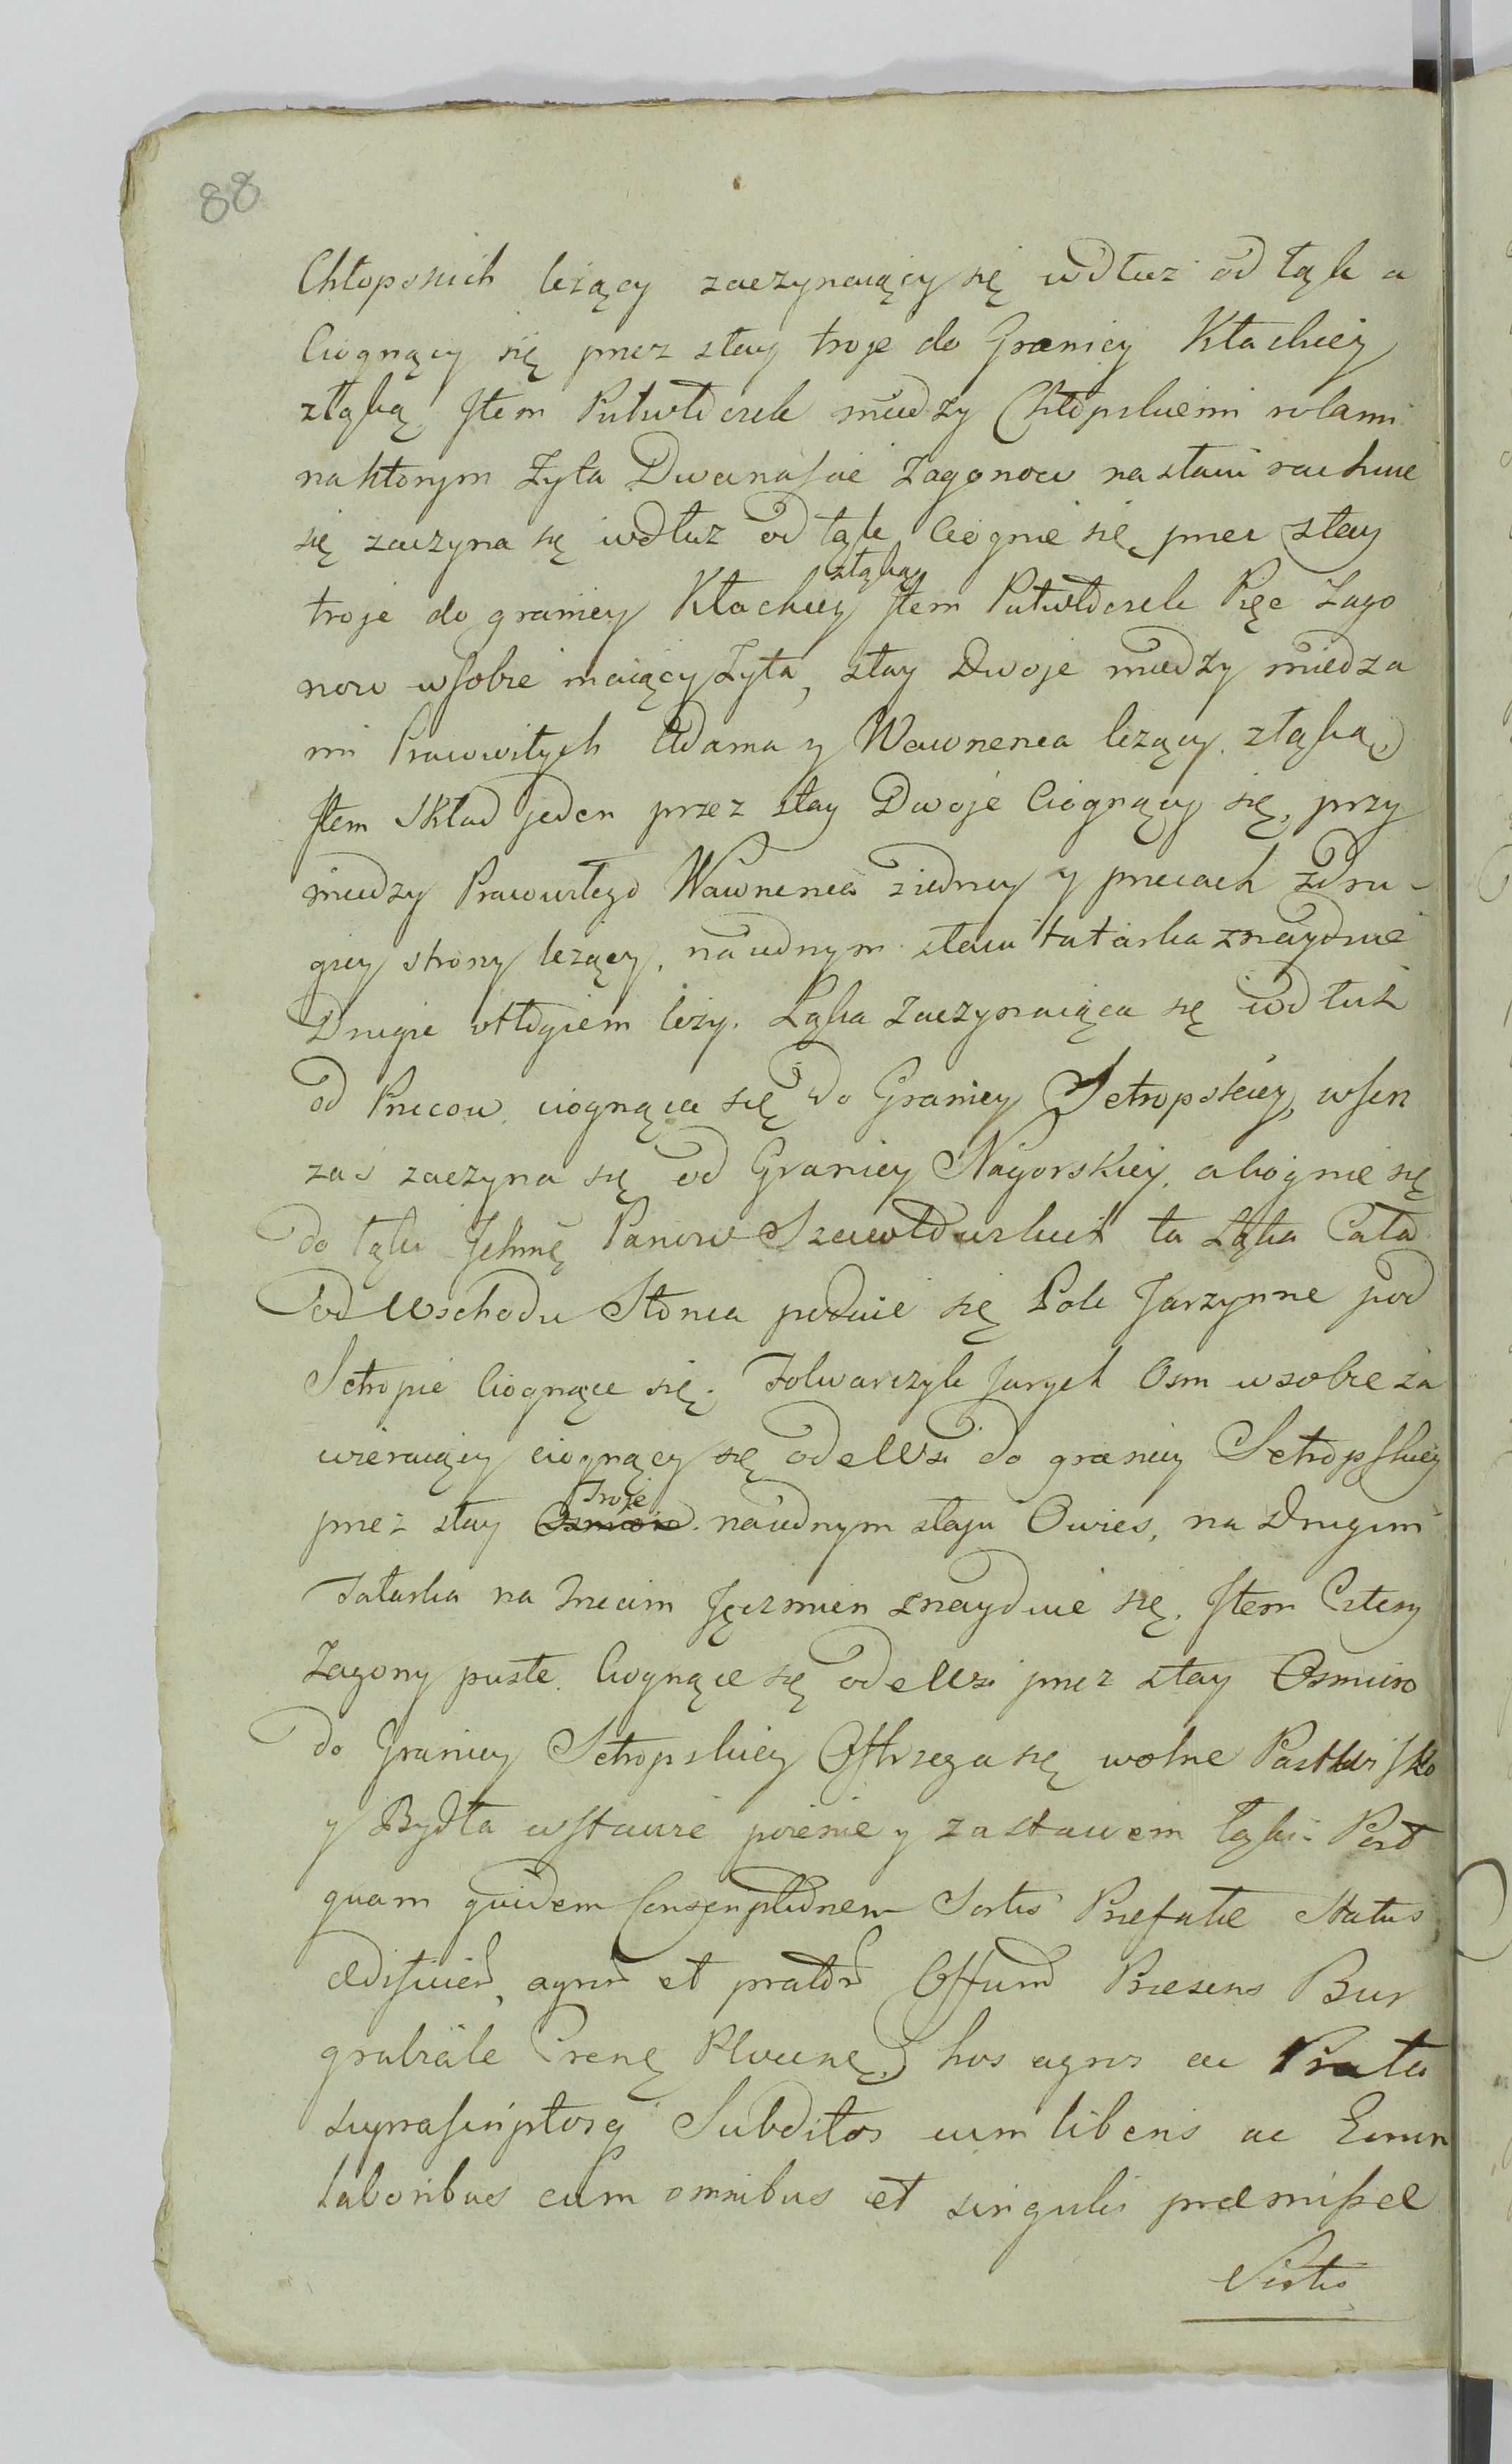 88
Chłopskich leżący zaczynaiący się wdłuż od łąk a
Ciognący się przez stay troje do Granicy Kłackiey
złąką, Jtem Pułwłoczek miedzy Chłopskiemi rolami
na ktorym Zyta Dwanascie Zagonow na staiu rachuie
się zaczyna się wdłuż od łąk Ciognie się przez stay
złąką
troje do granicy Kłackiey Jtem Pułwłoczek Pięc Zago
now wsobie maiący Zyta, stay Dwoje miedzy miedza
mi Pracowitych Adama y Wawrzenca leżący złąką,
Jtem Skład jeden przez stay Dwoje Ciognący się, przy
miedzy Pracowitego Wawrzenca ziedney y przecach zdru-
giey strony leżący, na iednym staiu tatarka znayduie
Drugie odłogiem leży. Łąka Zaczynaiąca się wdłuż
od Przecow ciognąca się do Granicy Sctropskiey, wszerz
zaś zaczyna się od Granicy Nagorskiey, a ciognie się
do łąki Jchmę Panow ta Łąka Cała
od Wschodu Słonca Pole Jarzynne pod
Sctropie Ciognące się. Folwarczyk Jarych Osm wsobie za
wieraiący ciognący się ode Wsi do granicy Sctropskiey
Troje
przez stay Osmioro na iednym staju Owies, na Drugim
Tatarka na Trzecim Jęczmien znayduie się. Jtem Cztery
Zagony puste Ciognące się ode Wsi przez stay Osmioro
do Granicy Sctropskiey Ostrzega się wolne Pastwisko
y Bydła wstawie poienie y zastawem łąki. Post
quam quidem Conscriptionem Sortis Præfatæ Status
ædificior, agror et prator Offium Præsens Bur
grabiale hos agros ac Prata
suprascriptosq Subditos cum liberis ac Eorum
laboribus cum omnibus et singulis præmissæ
Sortis